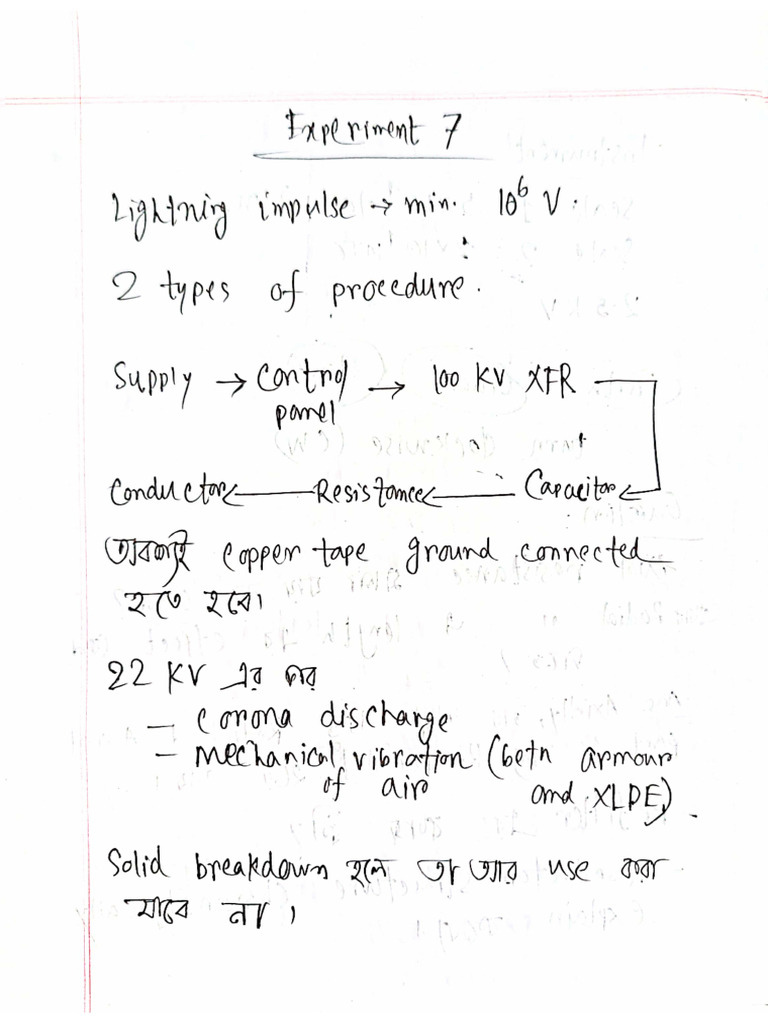 Experiment 7
Lightning impulse → min. 10⁶ V.
2 types of procedure.
Supply → Control panel → 100 KV XFR
Conductor ← Resistance ← Capacitor ←
অবশ্যই copper tape ground connected
হতে হবে।
22 KV এর পর
– Corona discharge
– Mechanical vibration (betn armour
of air and XLPE)
Solid breakdown হলে তা আর use করা
যাবে না।